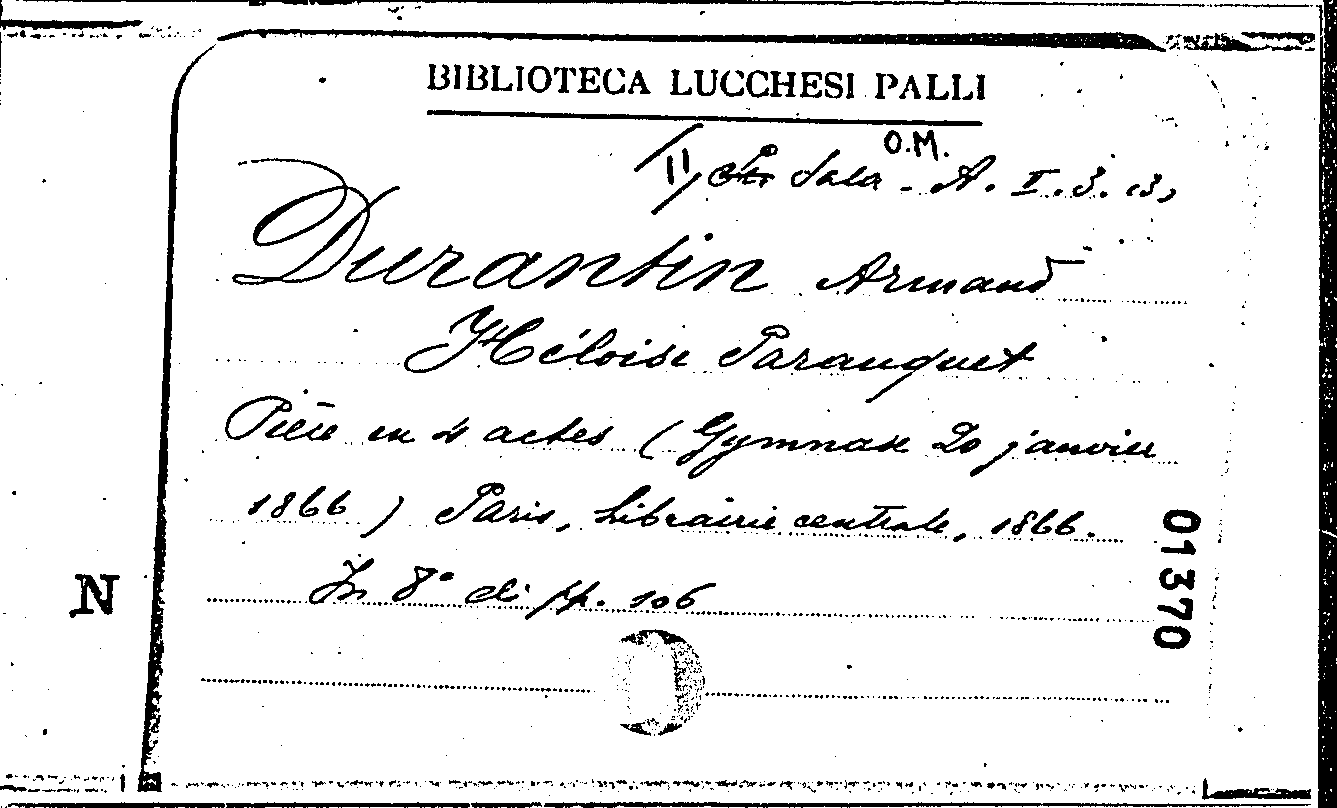 BIBLIOTECA LUCCHESI PALLI
O.M.
II Sala - A. I. 3. 13,
Durantin Armand
Héloise Paranquet
Pièce en 4 actes (Gymnase 20 janvier
1866) Paris, Librairie centrale, 1866.
In 8° di pp. 106
N
01370